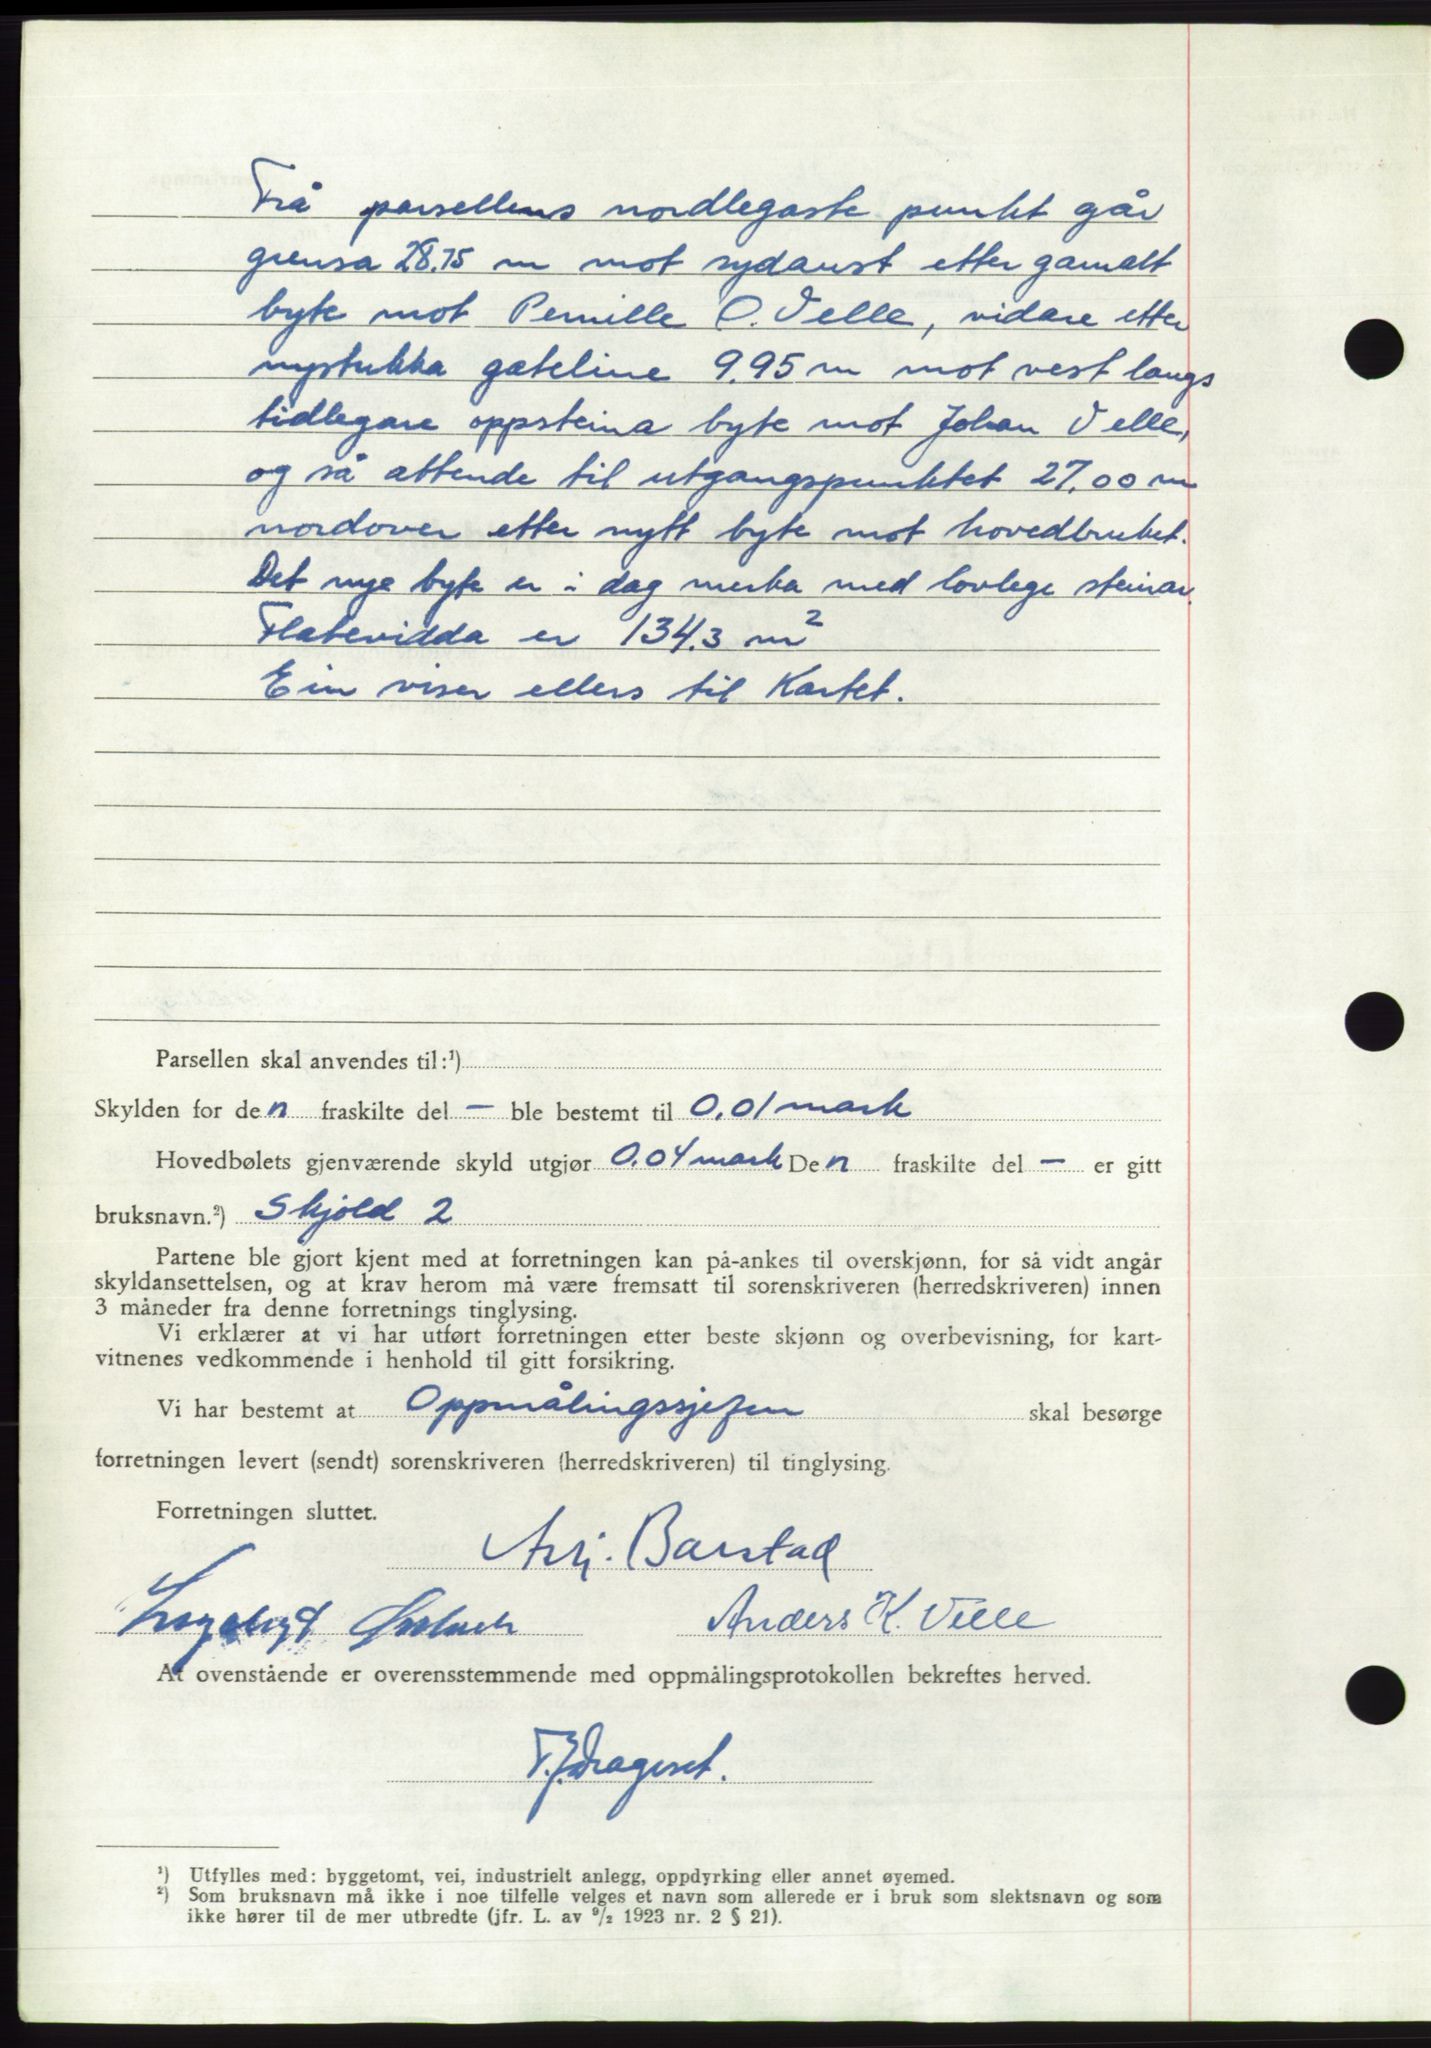 Frå parsellens nordlegaste punkt går
grensa 28.75 m mot sydaust etter gamalt
byte mot Pernille O. Velle, vidare etter
nystukka gateline 9.95 m mot vest langs
tidlegare oppsteina byte mot Johan Velle,
og så attende til utgangspunktet 27,00 m
nordover etter nytt byte mot hovedbruket.
Det nye byte er i dag merka med lovlege steinar.
Flatevidda er 134.3 m²
Ein viser ellers til Kartet.
Parsellen skal anvendes til:¹)
Skylden for den fraskilte del — ble bestemt til 0.01 mark
Hovedbølets gjenværende skyld utgjør 0.04 mark Den fraskilte del — er gitt
bruksnavn.²) Skjold 2
Partene ble gjort kjent med at forretningen kan på-ankes til overskjønn, for så vidt angår
skyldansettelsen, og at krav herom må være fremsatt til sorenskriveren (herredskriveren) innen
3 måneder fra denne forretnings tinglysing.
Vi erklærer at vi har utført forretningen etter beste skjønn og overbevisning, for kart-
vitnenes vedkommende i henhold til gitt forsikring.
Vi har bestemt at Oppmålingssjefen skal besørge
forretningen levert (sendt) sorenskriveren (herredskriveren) til tinglysing.
Forretningen sluttet.
Barstad
Anders K. Velle
At ovenstående er overensstemmende med oppmålingsprotokollen bekreftes herved.
T. J. Drageset.
¹) Utfylles med: byggetomt, vei, industrielt anlegg, oppdyrking eller annet øyemed.
²) Som bruksnavn må ikke i noe tilfelle velges et navn som allerede er i bruk som slektsnavn og som
ikke hører til de mer utbredte (jfr. L. av ⁹/₂ 1923 nr. 2 § 21).